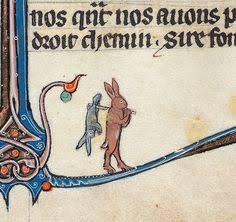 nos qñt nos auons p
droit chemin. Sire fon